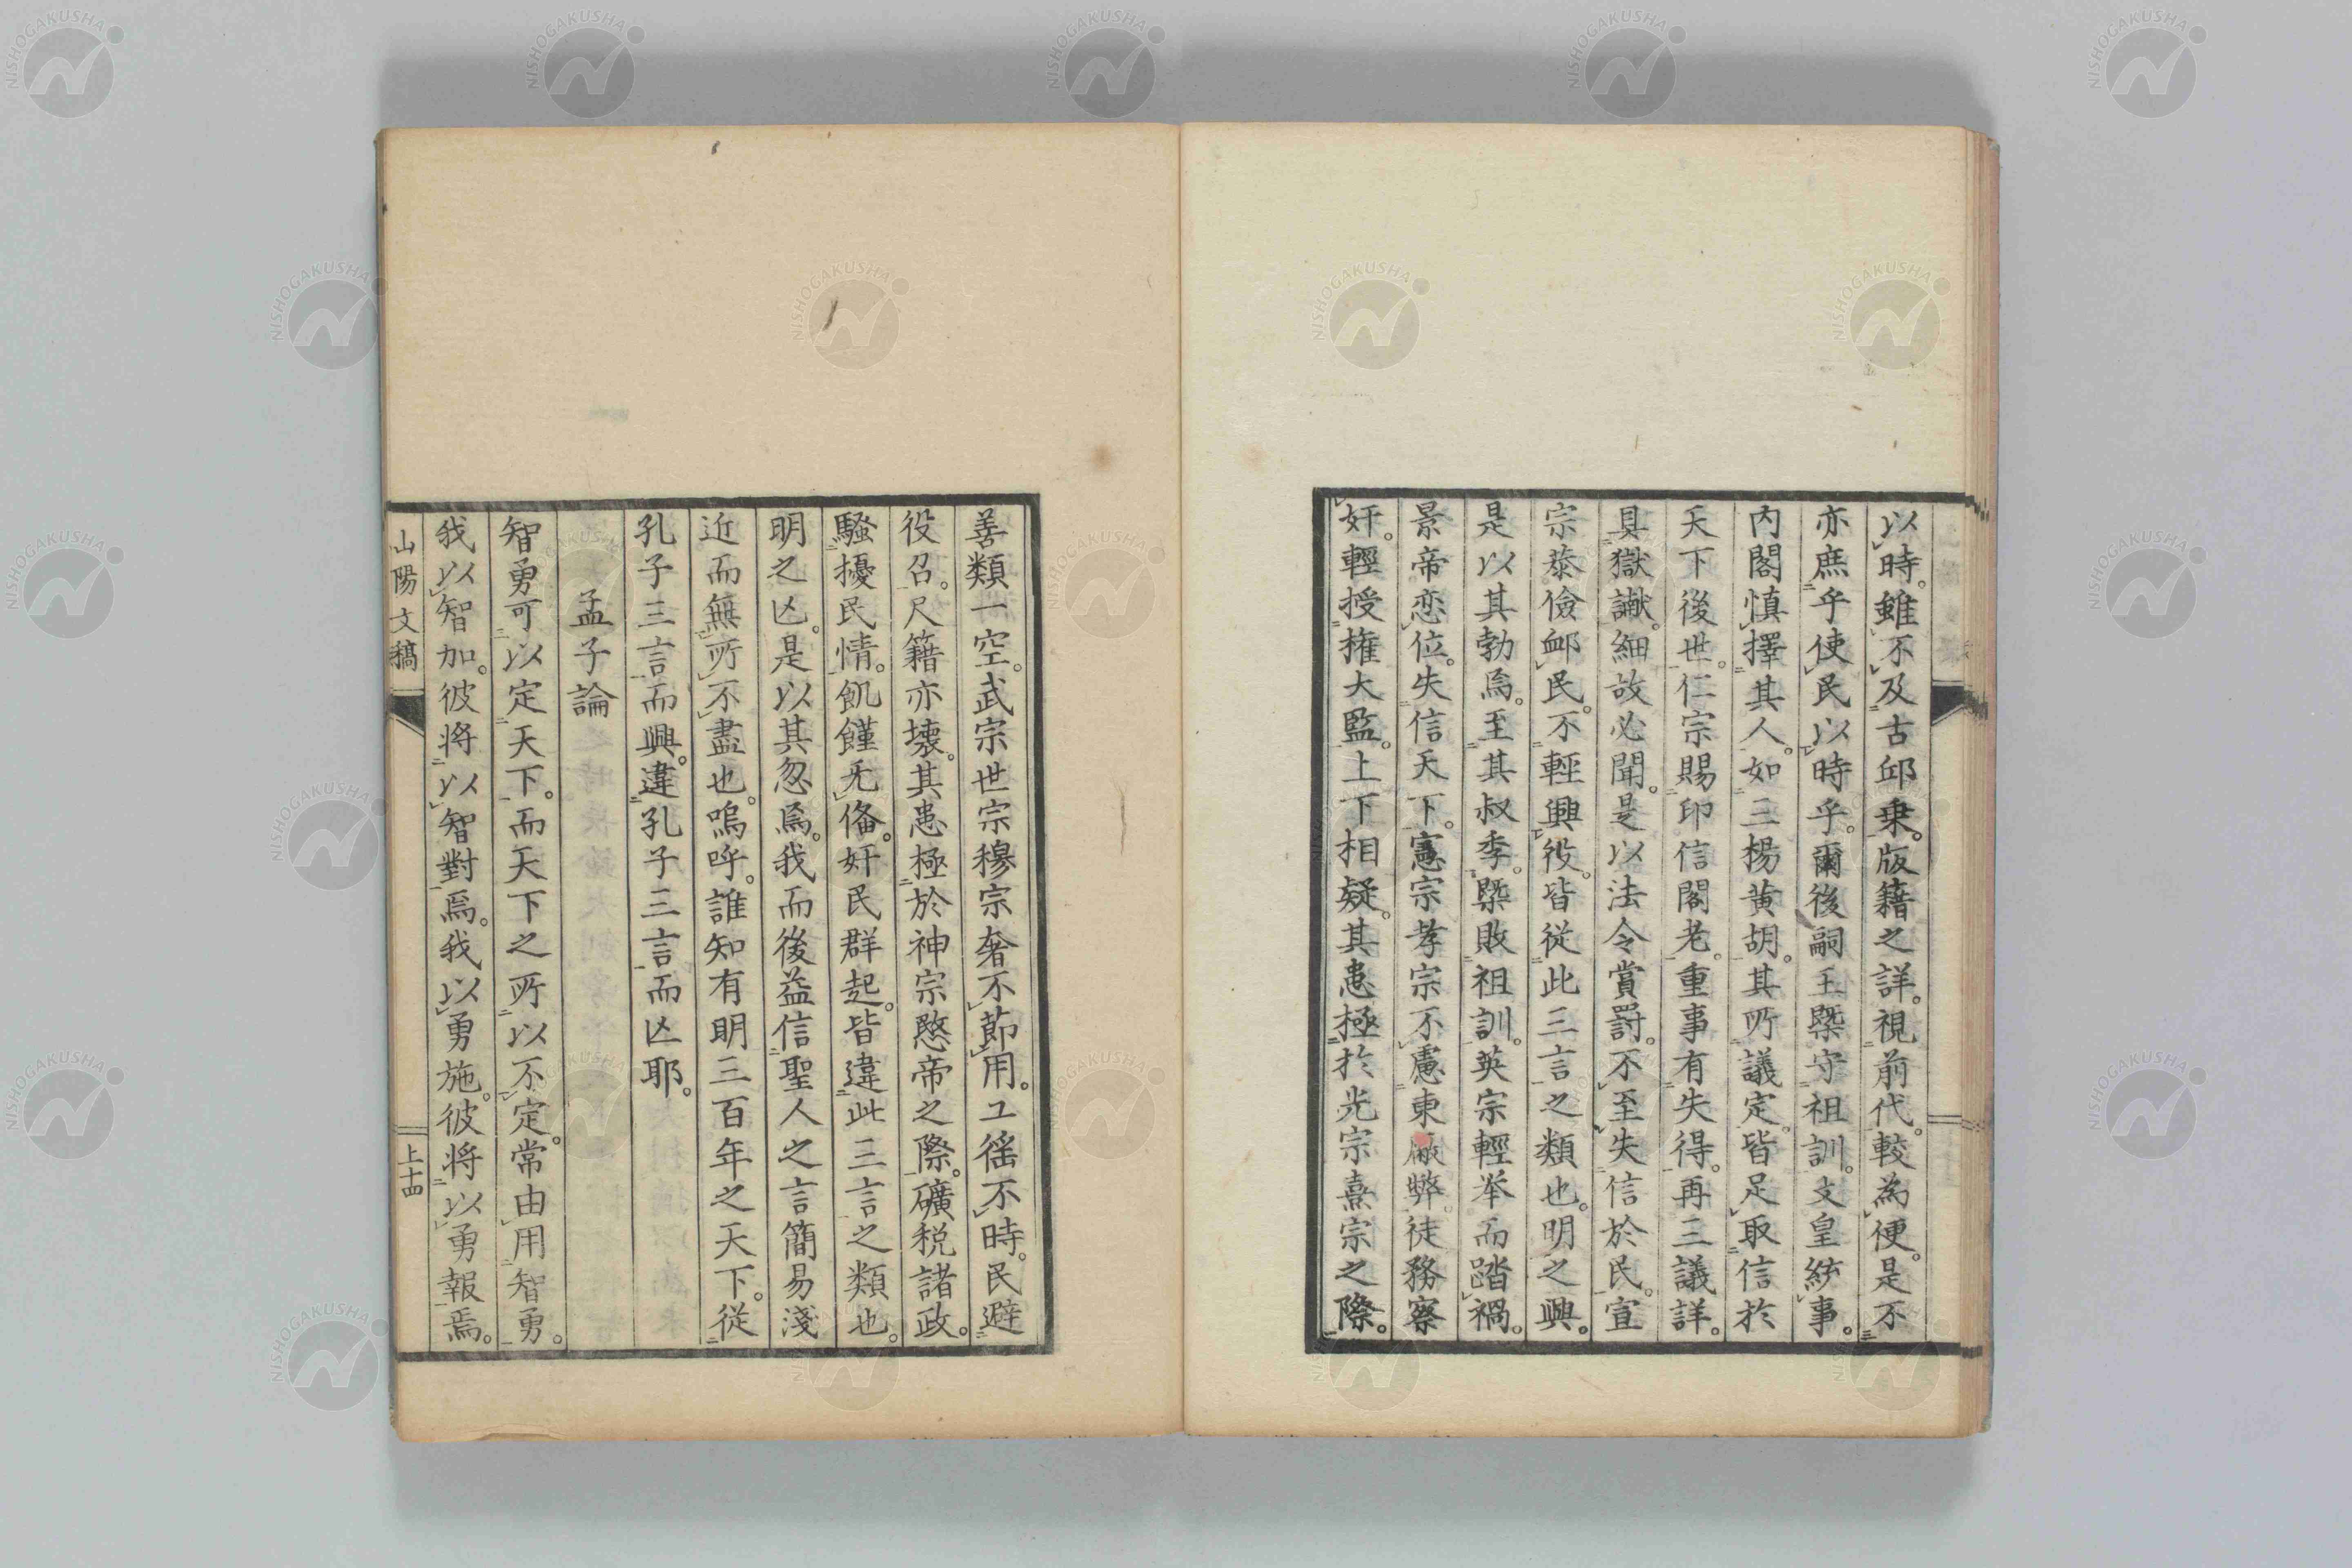 以時。雖不及古邱乗。版籍之詳。視前代。較為便。是不
亦庶乎使民以時乎。爾後嗣王槩守祖訓。文皇統事。
内閣慎擇其人。如三楊黄胡。其所議定。皆足取信於
天下後世。仁宗賜印信閣老。重事有失得。再三議詳。
具獄讞。細故必聞。是以法令賞罰。不至失信於民。宣
宗恭儉卹民。不輕興役。皆従此三言之類也。明之興。
是以其勃焉。至其叔季。槩敗祖訓。英宗輕举而踏禍。
景帝恋位。失信天下。憲宗孝宗不慮東廠弊。徒務察
奸。輕授權大監。上下相疑。其患極於光宗熹宗之際。
善類一空。武宗世宗穆宗奢不節用。工徭不時。民避
役召。尺籍亦壊。其患極於神宗愍帝之際。礦税諸政。
騷擾民情。飢饉无備。奸民群起。皆違此三言之類也。
明之亾。是以其忽焉。我而後益信聖人之言簡易淺
近而無所不盡也。嗚呼。誰知有明三百年之天下。従
孔子三言而興。違孔子三言而亾耶。
孟子論
智勇可以定天下。而天下之所以不定。常由用智勇。
我以智加。彼将以智對焉。我以勇施。彼将以勇報焉。
山陽文稿
上十四
NISHOGAKUSHA